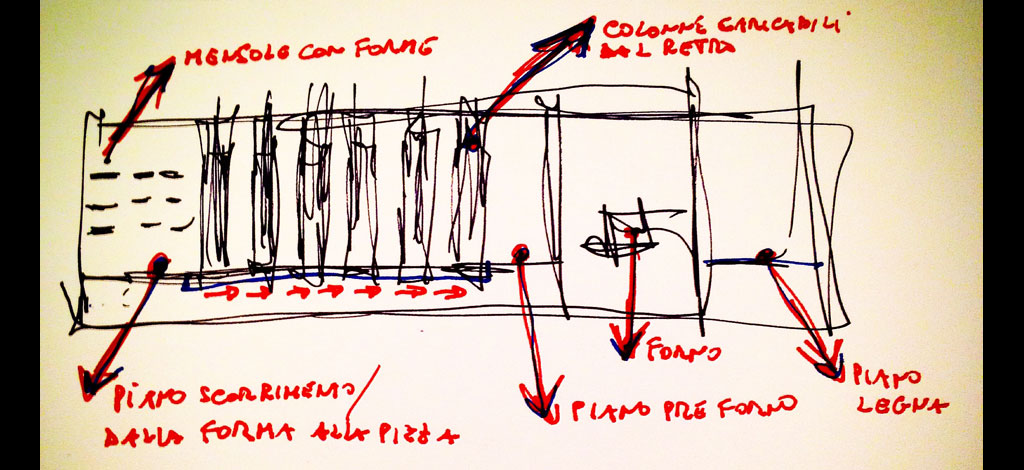 MENSOLE CON FORME
COLONNE CARICABILI
DAL RETRO
FORNO
PIANO SCORRIMENO
DALLA FORMA ALLA PIZZA
PIANO PRE FORNO
PIANO
LEGNA